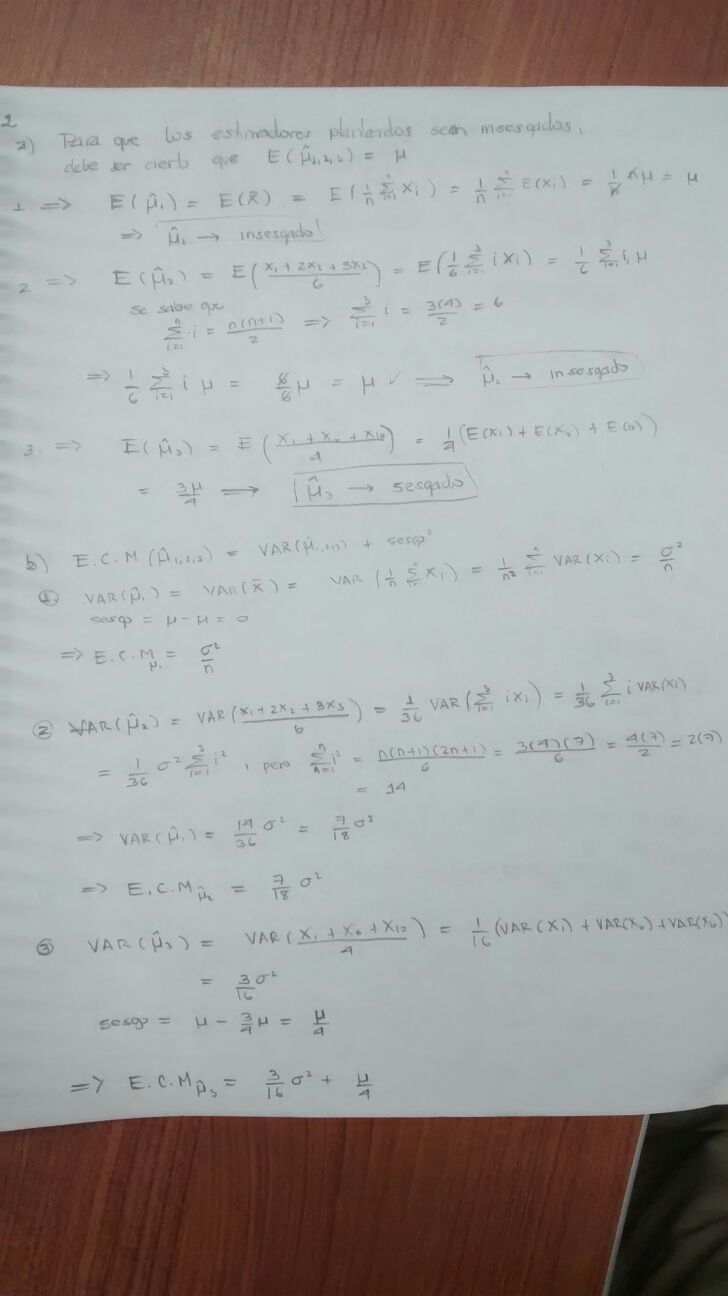 2
a) Para que los estimadores planteados sean insesgados,
debe ser cierto que E(μ̂₁,₂,₃) = μ
1 => E(μ̂₁) = E(X̄) = E(1/n Σⁿᵢ₌₁ Xᵢ) = 1/n Σⁿᵢ₌₁ E(Xᵢ) = 1/n nμ = μ
=> μ̂₁ → insesgado!
2 => E(μ̂₂) = E((X₁ + 2X₂ + 3X₃)/6) = E(1/6 Σ³ᵢ₌₁ iXᵢ) = 1/6 Σ³ᵢ₌₁ i μ
se sabe que
Σⁿᵢ₌₁ i = n(n+1)/2 => Σ³ᵢ₌₁ i = 3(4)/2 = 6
=> 1/6 Σ³ᵢ₌₁ i μ = 6/6 μ = μ ✓ => μ̂₂ → insesgado
3. => E(μ̂₃) = E((X₁ + X₆ + X₁₀)/4) = 1/4 (E(X₁) + E(X₆) + E( ))
= 3μ/4 => μ̂₃ → sesgado
b) E.C.M (μ̂₁,₂,₃) = VAR(μ̂₁,₂,₃) + sesgo²
① VAR(μ̂₁) = VAR(X̄) = VAR (1/n Σⁿᵢ₌₁ Xᵢ) = 1/n² Σⁿᵢ₌₁ VAR(Xᵢ) = σ²/n
sesgo = μ - μ = 0
=> E.C.M μ̂₁ = σ²/n
② VAR(μ̂₂) = VAR((X₁ + 2X₂ + 3X₃)/6) = 1/36 VAR(Σ³ᵢ₌₁ iXᵢ) = 1/36 Σ³ᵢ₌₁ i VAR(Xᵢ)
= 1/36 σ² Σ³ᵢ₌₁ i², pero Σⁿₙ₌ᵢ i² = n(n+1)(2n+1)/6 = 3(4)(7)/6 = 4(7)/2 = 2(7)
= 14
=> VAR(μ̂₁) = 14/36 σ² = 7/18 σ²
=> E.C.M μ̂₂ = 7/18 σ²
③ VAR(μ̂₃) = VAR((X₁ + X₆ + X₁₀)/4) = 1/16 (VAR(X₁) + VAR(X₆) + VAR(X₆))
= 3/16 σ²
sesgo = μ - 3/4 μ = μ/4
=> E.C.M μ̂₃ = 3/16 σ² + μ/4